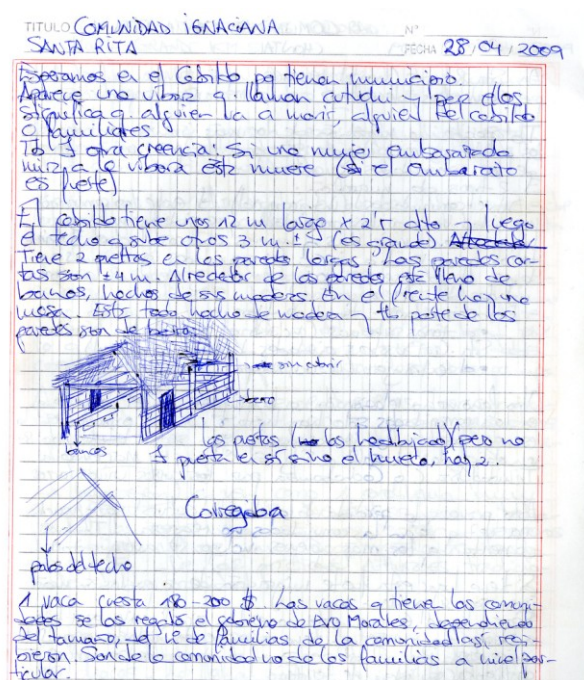 TITULO COMUNIDAD IGNACIANA Nº
SANTA RITA FECHA 28/04/2009
Esperamos en el Cabildo pq tienen municipio.
Aparece una víbora q. llaman cutuchi y per ellos
significa q. alguien va a morir, alguien del cabildo
o familiares
Tb otra creencia: Si una mujer embarazada
mira a la víbora esta muere (si el embarazo
es fuerte)
El cabildo tiene unos 12 m largo x 2'5 alto y luego
el techo q sube otros 3 m. ± (es grande)
Tiene 2 puertas en las paredes largas. Las paredes cor-
tas son ± 4 m. Alrededor de las paredes está lleno de
bancos, hechos de sus maderas. En el frente hay una
mesa. Esta todo hecho de madera y tb parte de las
paredes son de barro.
sin cubrir
barro
bancos
las puertas (las he dibujado) pero no
puerta en sí sino el hueco, hay 2.
Corregidora
palos del techo
1 vaca cuesta 180-200 $. Las vacas q tienen las comuni-
dades se las regaló el gobierno de Evo Morales, dependiendo
del tamaño, del nº de familias de la comunidad así reci-
bieron. Son de la comunidad no de las familias a nivel par-
ticular.